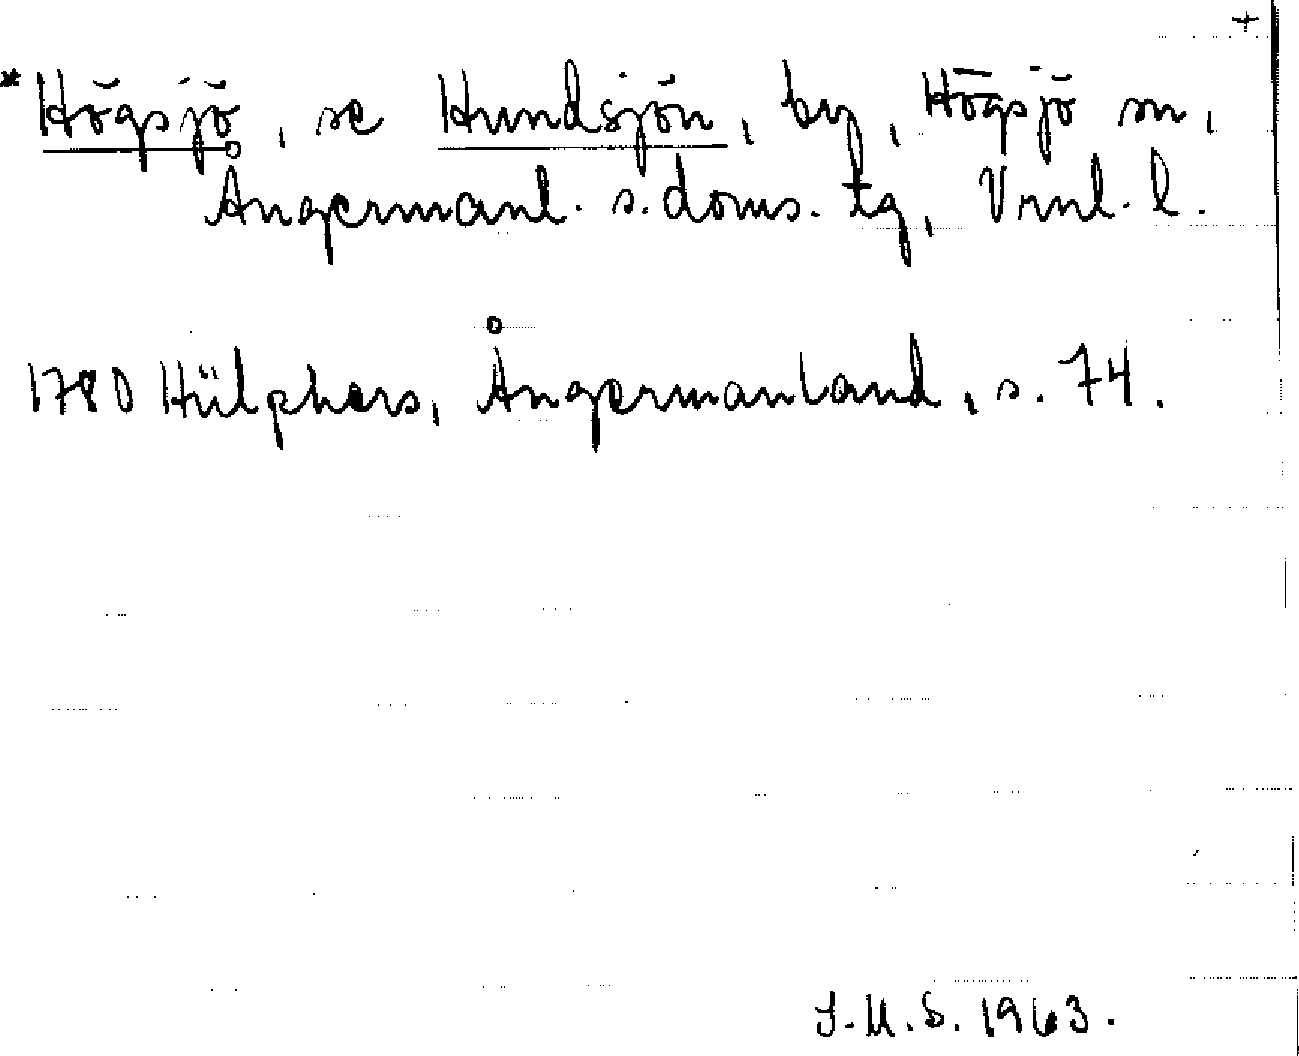 +
* Högsjö, se Hundsjön, by, Högsjö sn,
Ångermanl. s. doms. tg, Vrnl. l.
1780 Hülphers, Ångermanland, s. 74.
S.U.S. 1963.